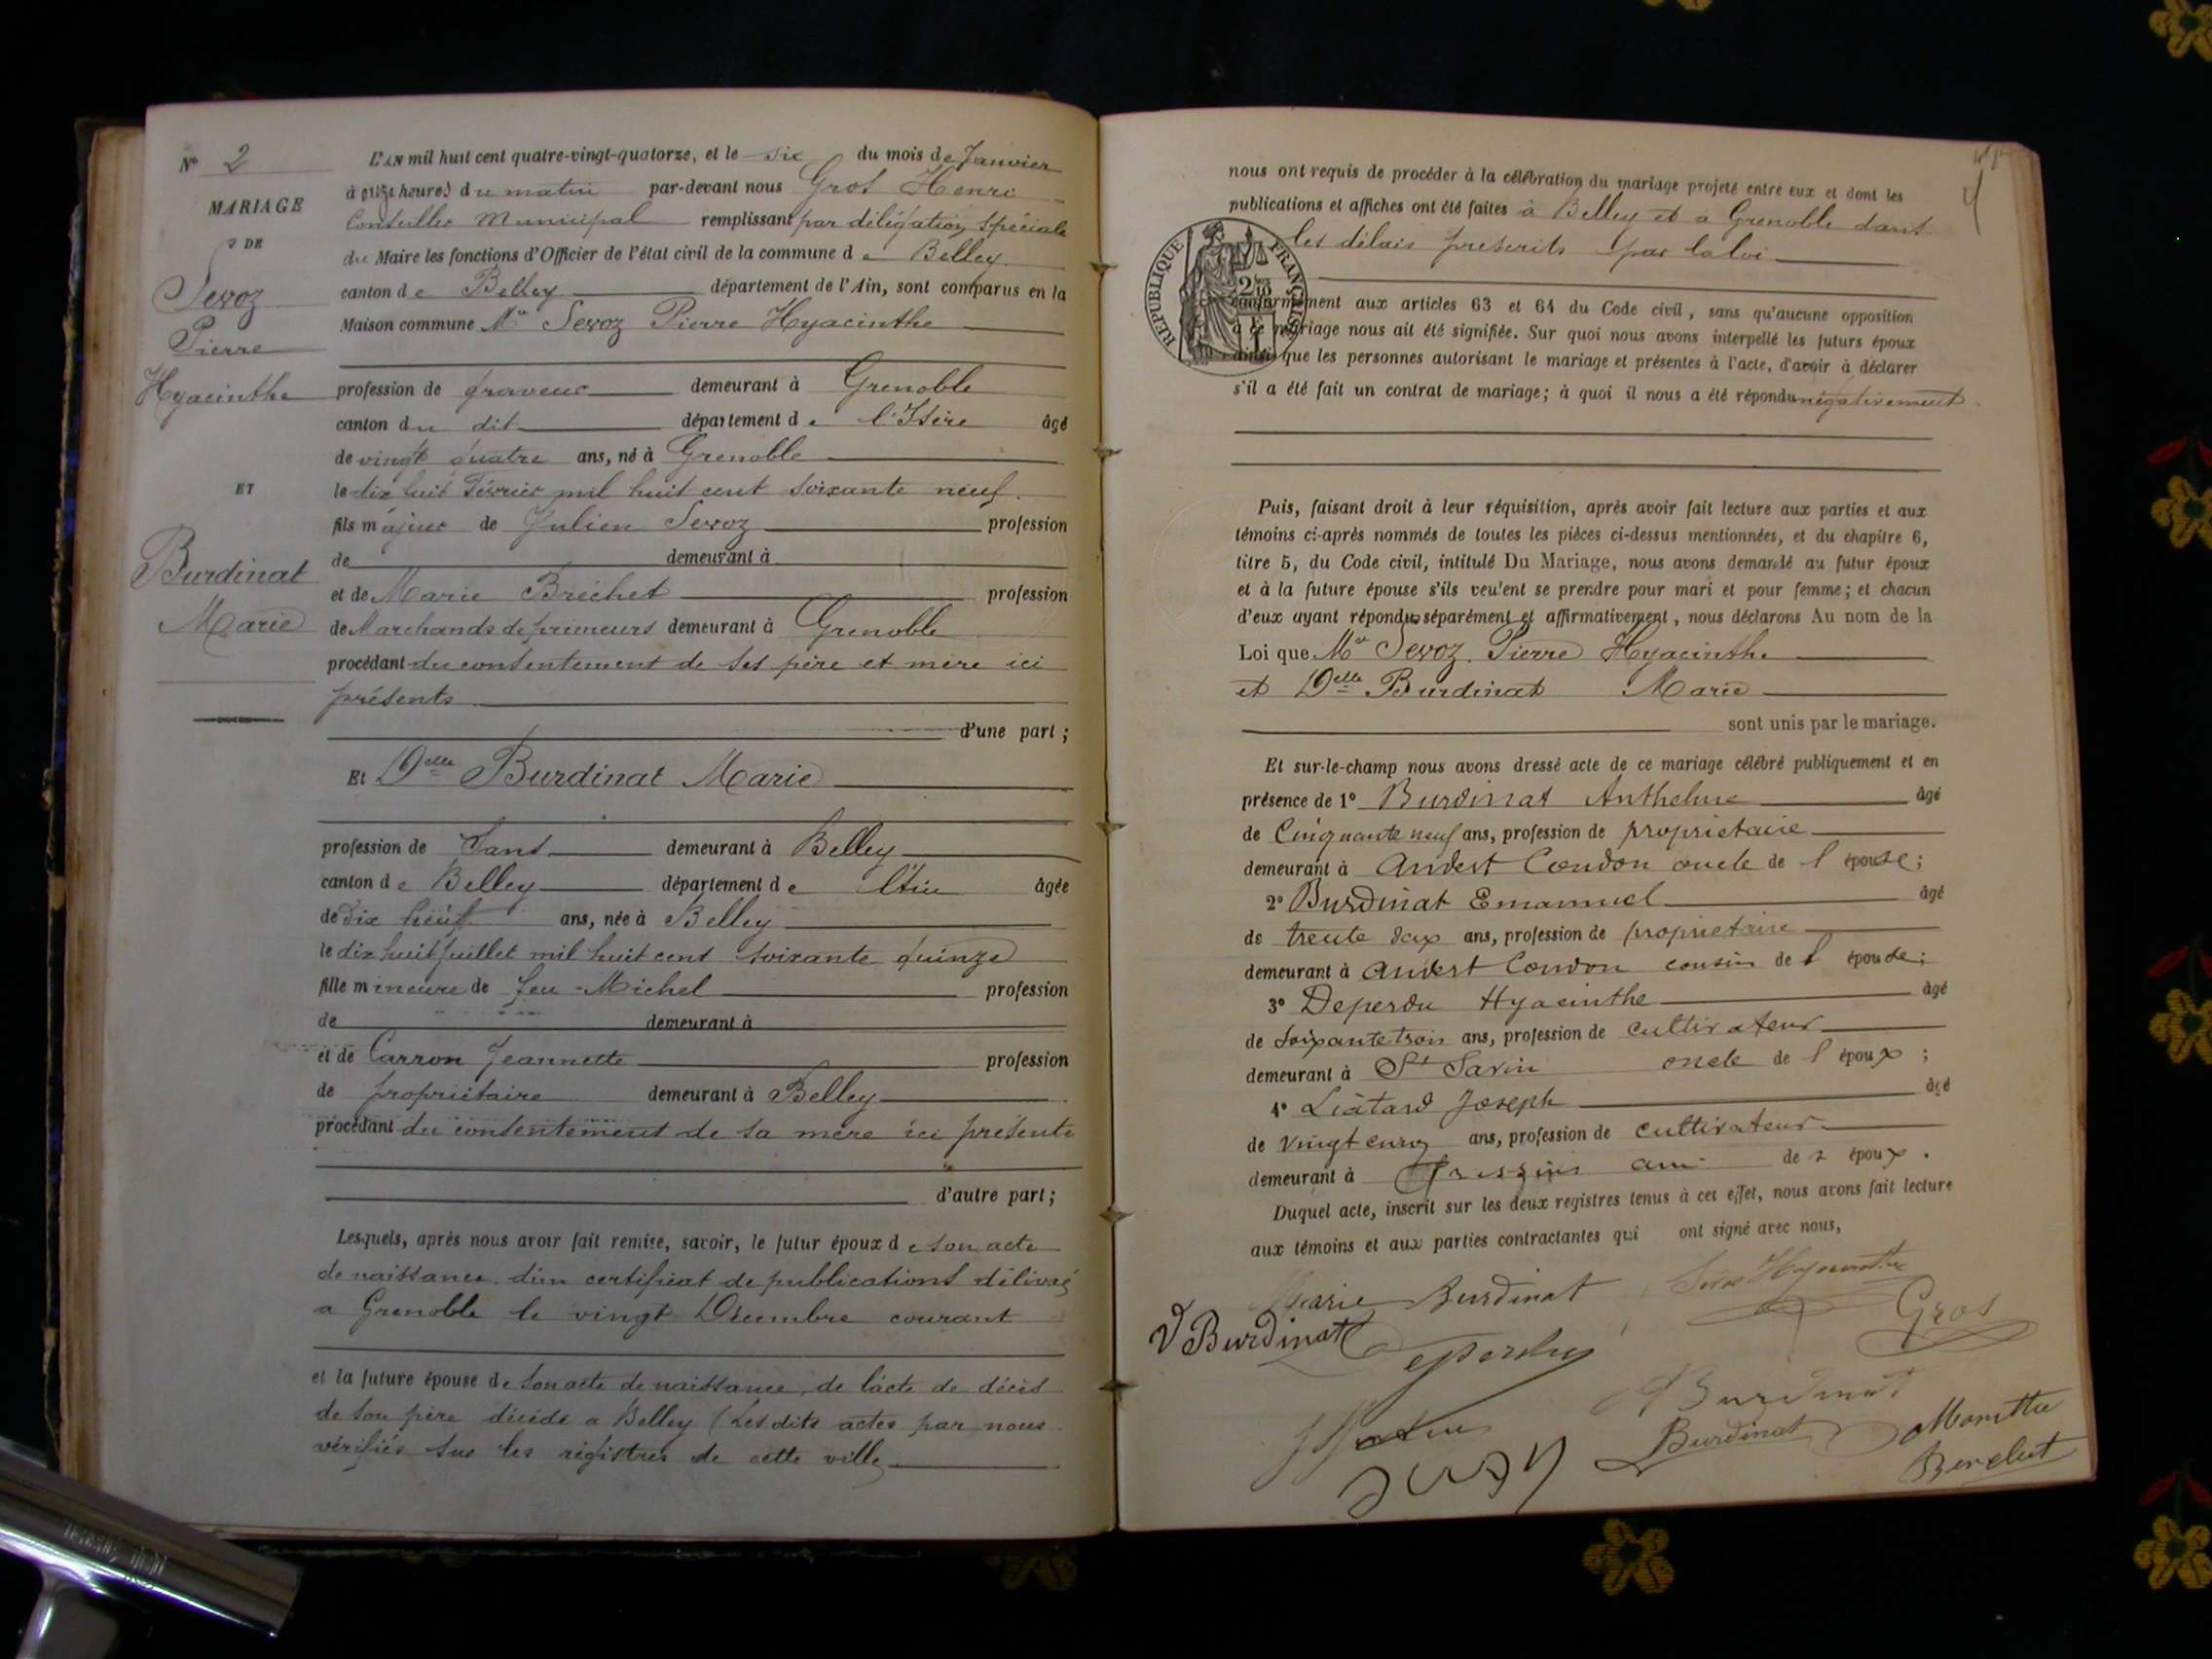 N° 2
MARIAGE
DE
Sevoz
Pierre
Hyacinthe
ET
Burdinat
Marie
L'AN mil huit cent quatre-vingt-quatorze, et le six du mois de Janvier
à onze heures du matin par-devant nous Gros Henri
Conseiller Municipal remplissant par délégation spéciale
du Maire les fonctions d'Officier de l'état civil de la commune de Belley
canton de Belley département de l'Ain, sont comparus en la
Maison commune Mr Sevoz Pierre Hyacinthe
profession de graveur demeurant à Grenoble
canton du dit département de l'Isère âgé
de vingt quatre ans, né à Grenoble
le dix huit Février mil huit cent soixante neuf
fils majeur de Julien Sevoz profession
de demeurant à
et de Marie Bréchet profession
de Marchands de primeurs demeurant à Grenoble
procédant du consentement de ses père et mère ici
présents
d'une part ;
Et Delle Burdinat Marie
profession de Sans demeurant à Belley
canton de Belley département de l'Ain âgée
de dix ans, née à Belley
le dix huit juillet mil huit cent soixante quinze
fille mineure de feu Michel profession
de demeurant à
et de Carron Jeannette profession
de propriétaire demeurant à Belley
procédant du consentement de sa mère ici présente
d'autre part ;
Lesquels, après nous avoir fait remise, savoir, le futur époux de son acte
de naissance, d'un certificat de publications délivré
a Grenoble le vingt Décembre courant
et la future épouse de son acte de naissance, de l'acte de décès
de son père décédé a Belley (Les dits actes par nous
vérifiés sur les régistres de cette ville
nous ont requis de procéder à la célébration du mariage projeté entre eux et dont les
publications et affiches ont été faites à Belley et a Grenoble dans
les délais prescrits par la loi
REPUBLIQUE FRANÇAISE
conformément aux articles 63 et 64 du Code civil, sans qu'aucune opposition
à ce mariage nous ait été signifiée. Sur quoi nous avons interpellé les futurs époux
ainsi que les personnes autorisant le mariage et présentes à l'acte, d'avoir à déclarer
s'il a été fait un contrat de mariage ; à quoi il nous a été répondu négativement.
Puis, faisant droit à leur réquisition, après avoir fait lecture aux parties et aux
témoins ci-après nommés de toutes les pièces ci-dessus mentionnées, et du chapitre 6,
titre 5, du Code civil, intitulé Du Mariage, nous avons demandé au futur époux
et à la future épouse s'ils veulent se prendre pour mari et pour femme ; et chacun
d'eux ayant répondu séparément et affirmativement, nous déclarons Au nom de la
Loi que Mr Sevoz Pierre Hyacinthe
et Delle Burdinat Marie
sont unis par le mariage.
Et sur-le-champ nous avons dressé acte de ce mariage célébré publiquement et en
présence de 1° Burdinat Anthelme âgé
de Cinquante neuf ans, profession de propriétaire
demeurant à Andert Condon oncle de l épouse ;
2° Burdinat Emanuel âgé
de trente ans, profession de propriétaire
demeurant à Andert Condon cousin de l épouse ;
3° Deperdu Hyacinthe âgé
de soixante trois ans, profession de cultivateur
demeurant à St Savin oncle de l époux ;
4° Liatard Joseph âgé
de Vingt cinq ans, profession de cultivateur
demeurant à ami de époux .
Duquel acte, inscrit sur les deux registres tenus à cet effet, nous avons fait lecture
aux témoins et aux parties contractantes qui ont signé avec nous,
Marie Burdinat
Gros
Burdinat
Deperdu
Burdinat
Burdinat